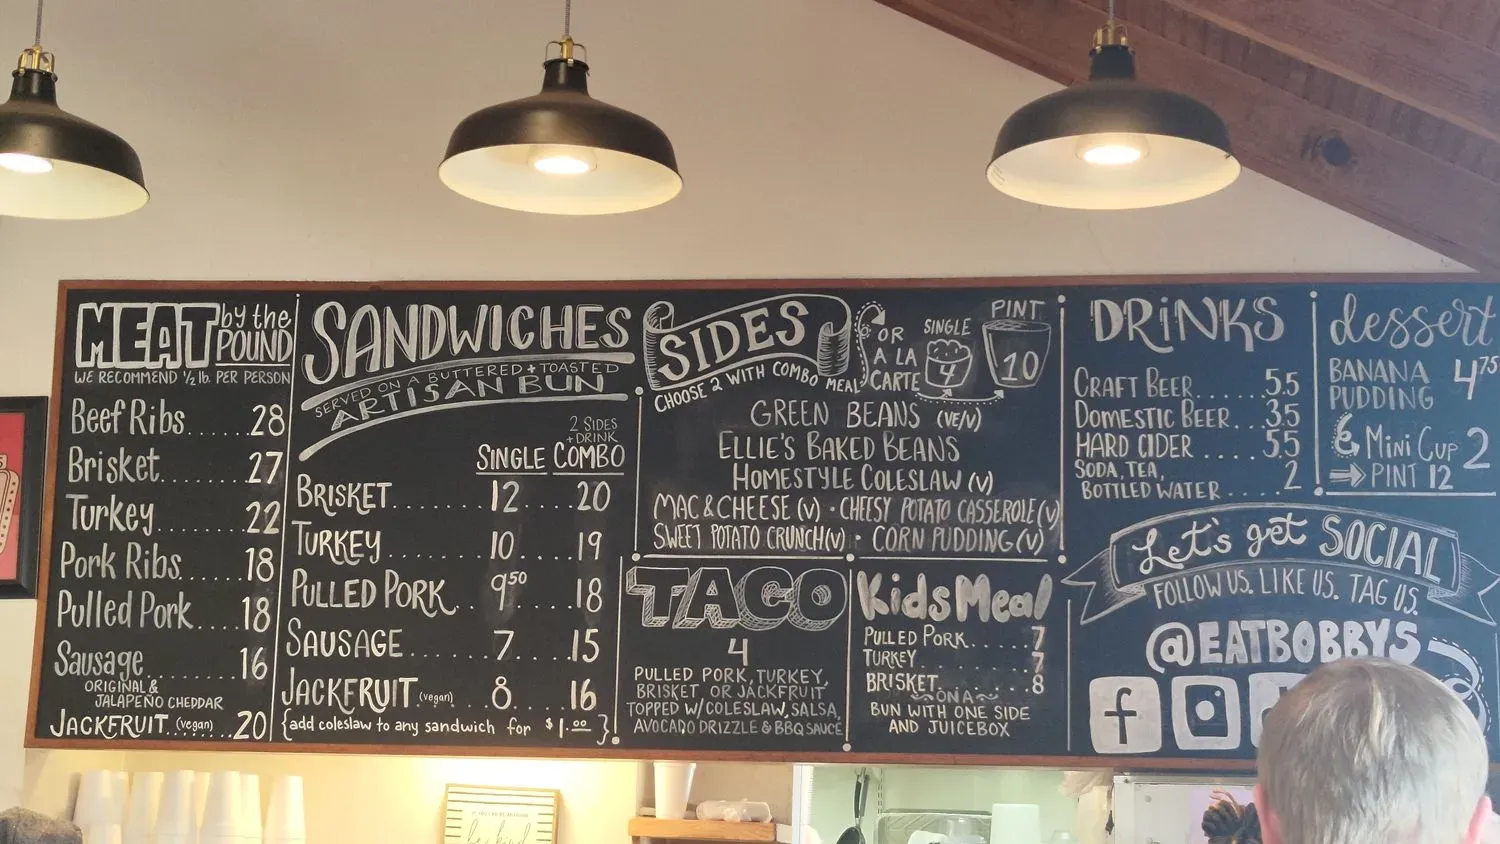 MEAT by the POUND
WE RECOMMEND 1/2 lb. PER PERSON
Beef Ribs......28
Brisket........27
Turkey.........22
Pork Ribs......18
Pulled Pork....18
Sausage........16
ORIGINAL &
JALAPEÑO CHEDDAR
JACKFRUIT (vegan)...20
SANDWICHES
SERVED ON A BUTTERED + TOASTED
ARTISAN BUN
2 SIDES
+ DRINK
SINGLE COMBO
BRISKET........12....20
TURKEY........10....19
PULLED PORK..9.50...18
SAUSAGE........7....15
JACKFRUIT (vegan)..8....16
{add coleslaw to any sandwich for $1.00}
SIDES
CHOOSE 2 WITH COMBO MEAL
OR
A LA
CARTE
SINGLE
4
PINT
10
GREEN BEANS (VE/V)
ELLIE'S BAKED BEANS
HOMESTYLE COLESLAW (V)
MAC & CHEESE (V) • CHEESY POTATO CASSEROLE (V)
SWEET POTATO CRUNCH (V) • CORN PUDDING (V)
TACO
4
PULLED PORK, TURKEY,
BRISKET, OR JACKFRUIT
TOPPED W/ COLESLAW, SALSA,
AVOCADO DRIZZLE & BBQ SAUCE
Kids Meal
PULLED PORK......7
TURKEY...........7
BRISKET..........8
~ON A~
BUN WITH ONE SIDE
AND JUICEBOX
DRiNKS
CRAFT BEER.......5.5
DOMESTIC BEER...3.5
HARD CIDER......5.5
SODA, TEA,
BOTTLED WATER.....2
dessert
BANANA
PUDDING 4.75
Mini Cup 2
PINT 12
Let's get SOCIAL
FOLLOW US. LIKE US. TAG US.
@EATBOBBYS
f
be kind